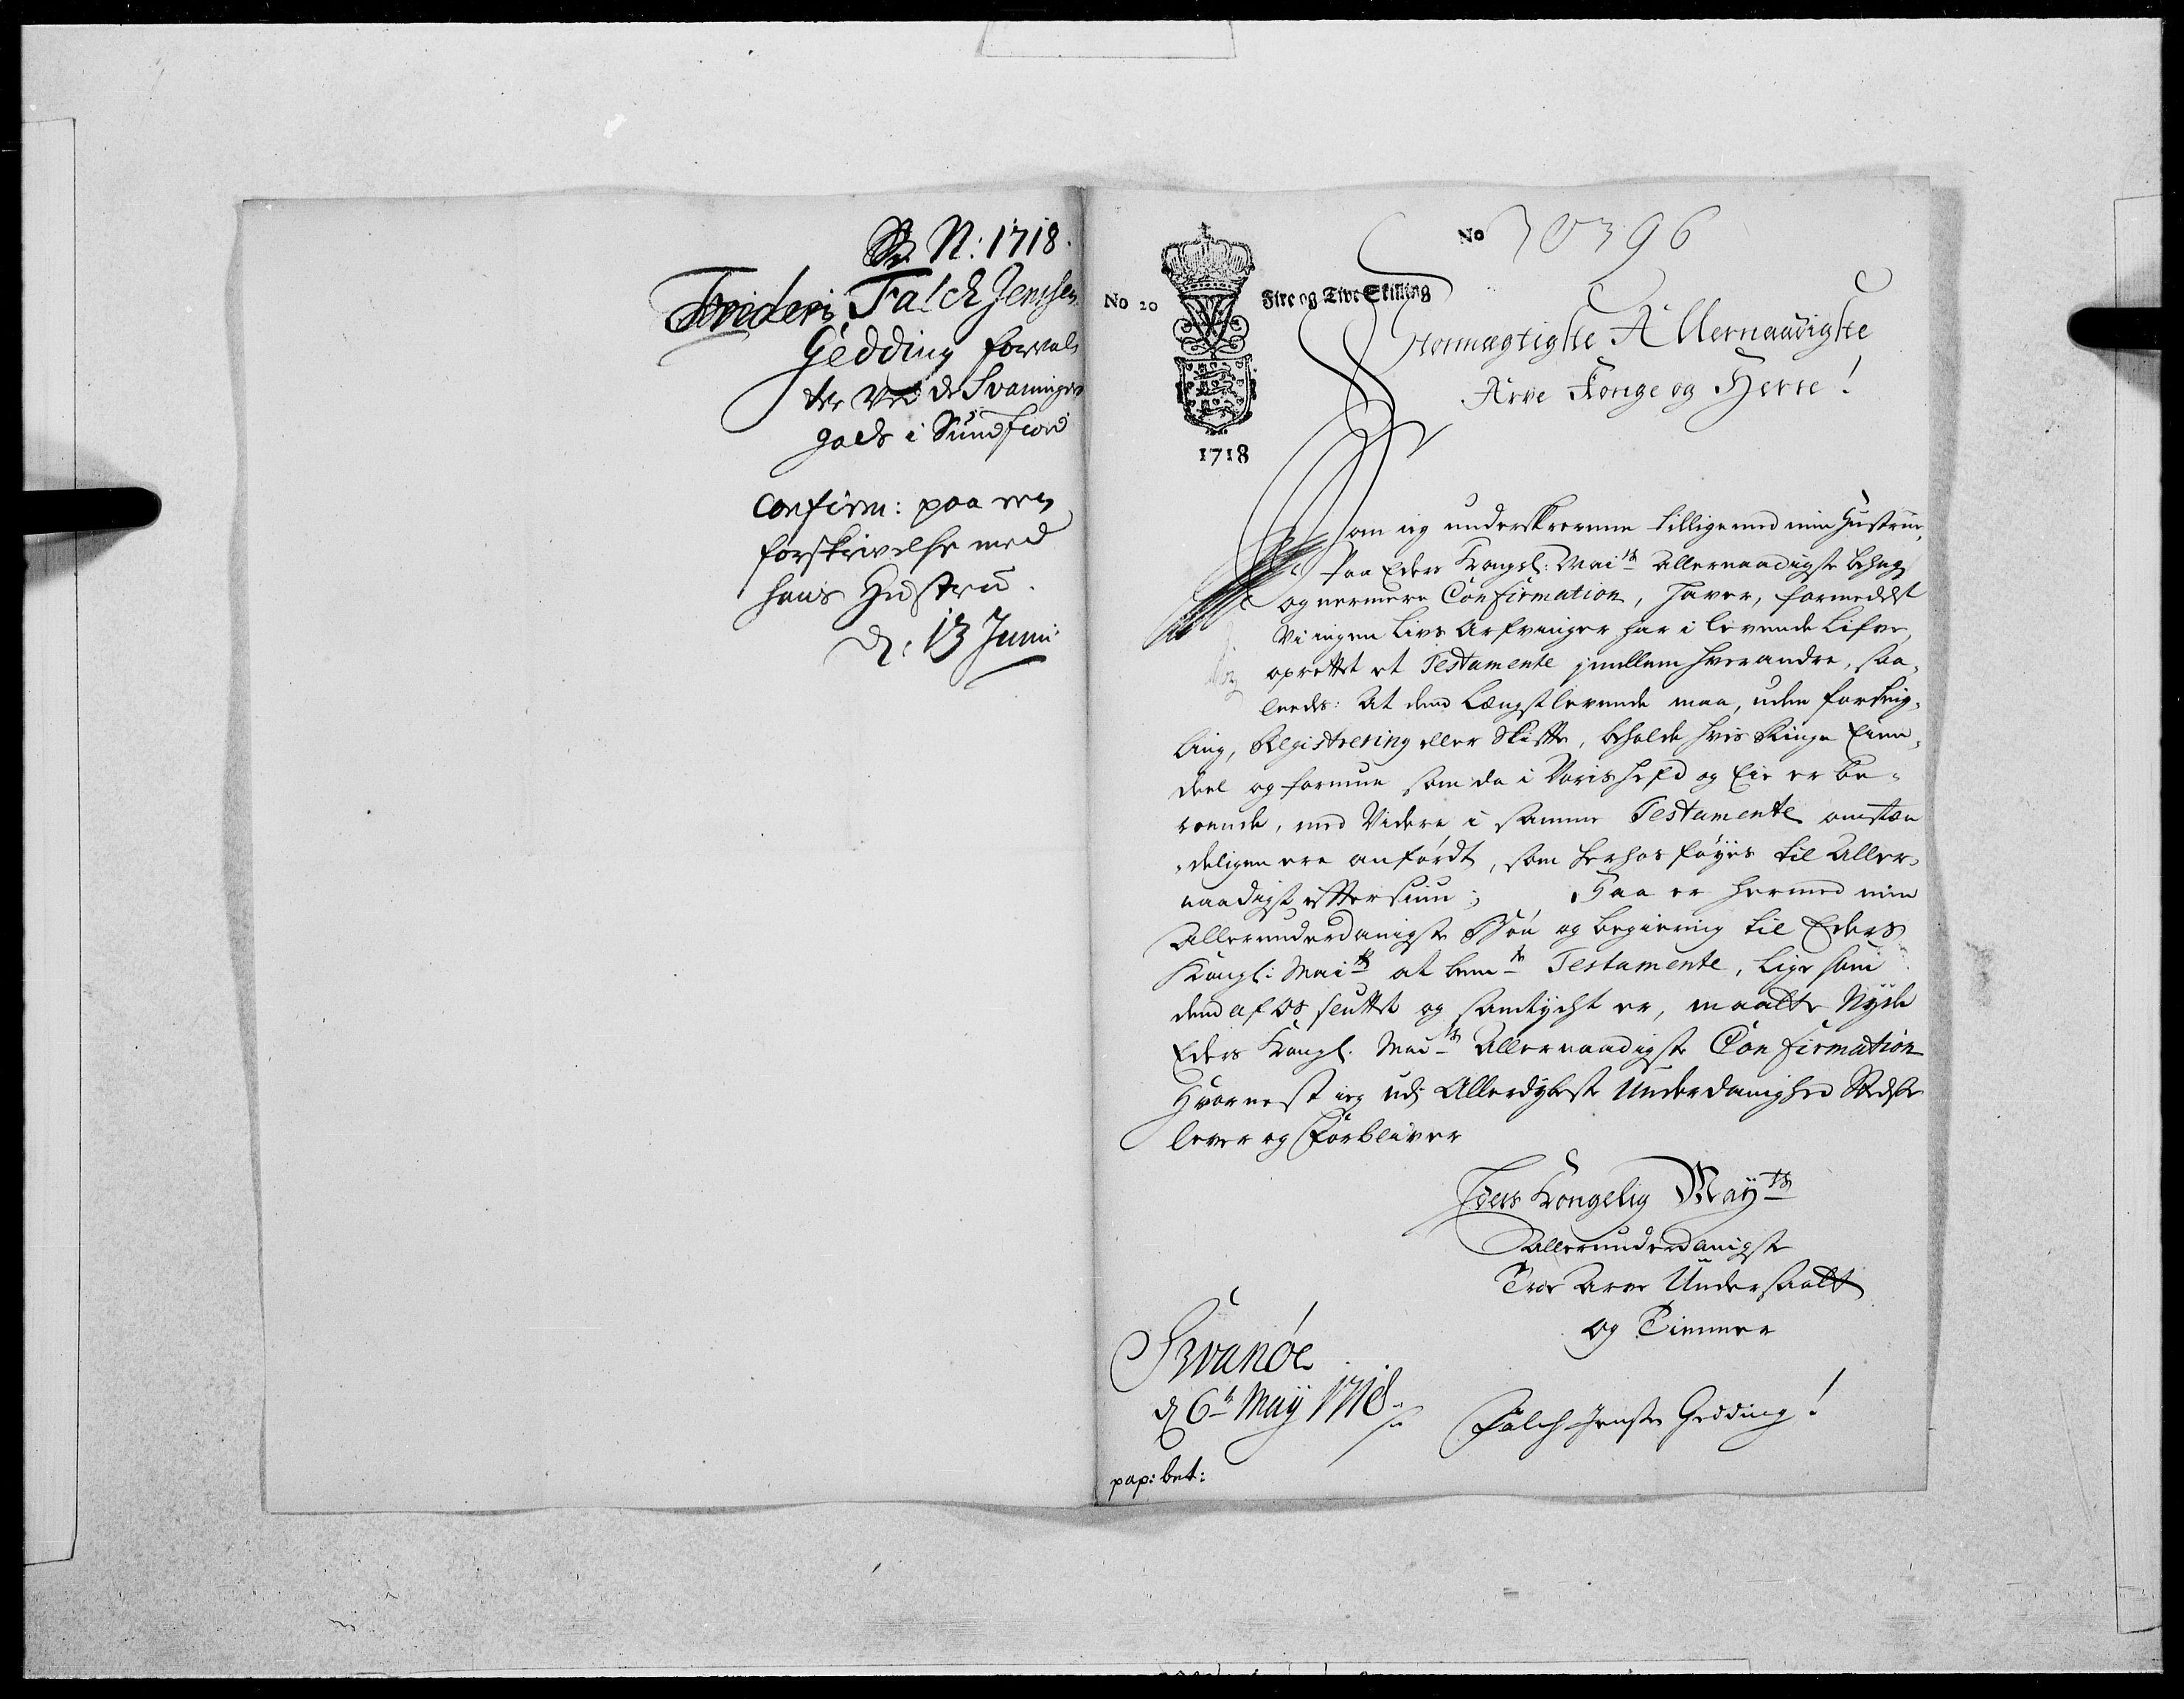 N: 1718.
Frideri Falck Jenssen
Gedding forval
ter ved de Svaningers
gods i Sundfiord
Confirm: paa een
forskrivelse med
hans Hustru.
d: 13 Juni
No 20
Fire og Tive Skilling
1718
No 30396
Stormægtigste Allernaadigste
Arve Konge og Herre!
Som ieg underskrevnne tillige med min Hustrue,
Paa Eders Kongl: Mai:ts allernaadigste behag
og nermere Confirmation, haver, formedelst
Vi ingen Livs Arfvinger har i levende Lifve,
oprettet et Testamente imellem hverandre, saa-
leedes: At dend Længstlevende maa, uden forseig-
ling, Registrering eller Skifte, beholde hvis Ringe Eien-
deel og formue som da i Voris hefd og Eie er be-
roende, med Videre i samme Testamente omstæn
deligen ere anfördt, som herhos föyes til Aller-
naadigst eftersiun; Saa er hermed min
Allerunderdanigste Bön og begiering til Eders
Kongl: Mai:ts at bem:te Testamente, lige som
dend af os sluttet og samtycht er, maatte Nyde
Eders Kongl. Mai:ts Allernaadigste Confirmation
Hvornest ieg udi Allerdybeste Underdanighed Stedse
lever og forbliver
Eders Kongelig May:ts
Allerunderdanigste
Troe Arve Undersaatt
og Tienner
Svanöe
d 6:te Maij 1718
Falch Jensen Gedding!
pap: bet: